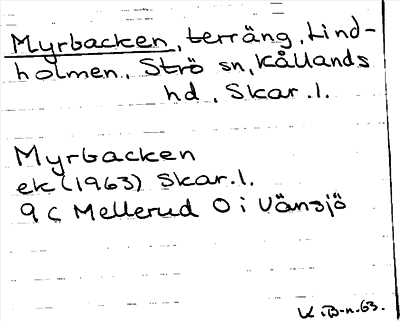 Myrbacken, terräng, Lind-
holmen, Strö sn, Kållands
hd, Skar.l.
Myrbacken
ek (1963) Skar.l.
9 c Mellerud O i Vänsjö